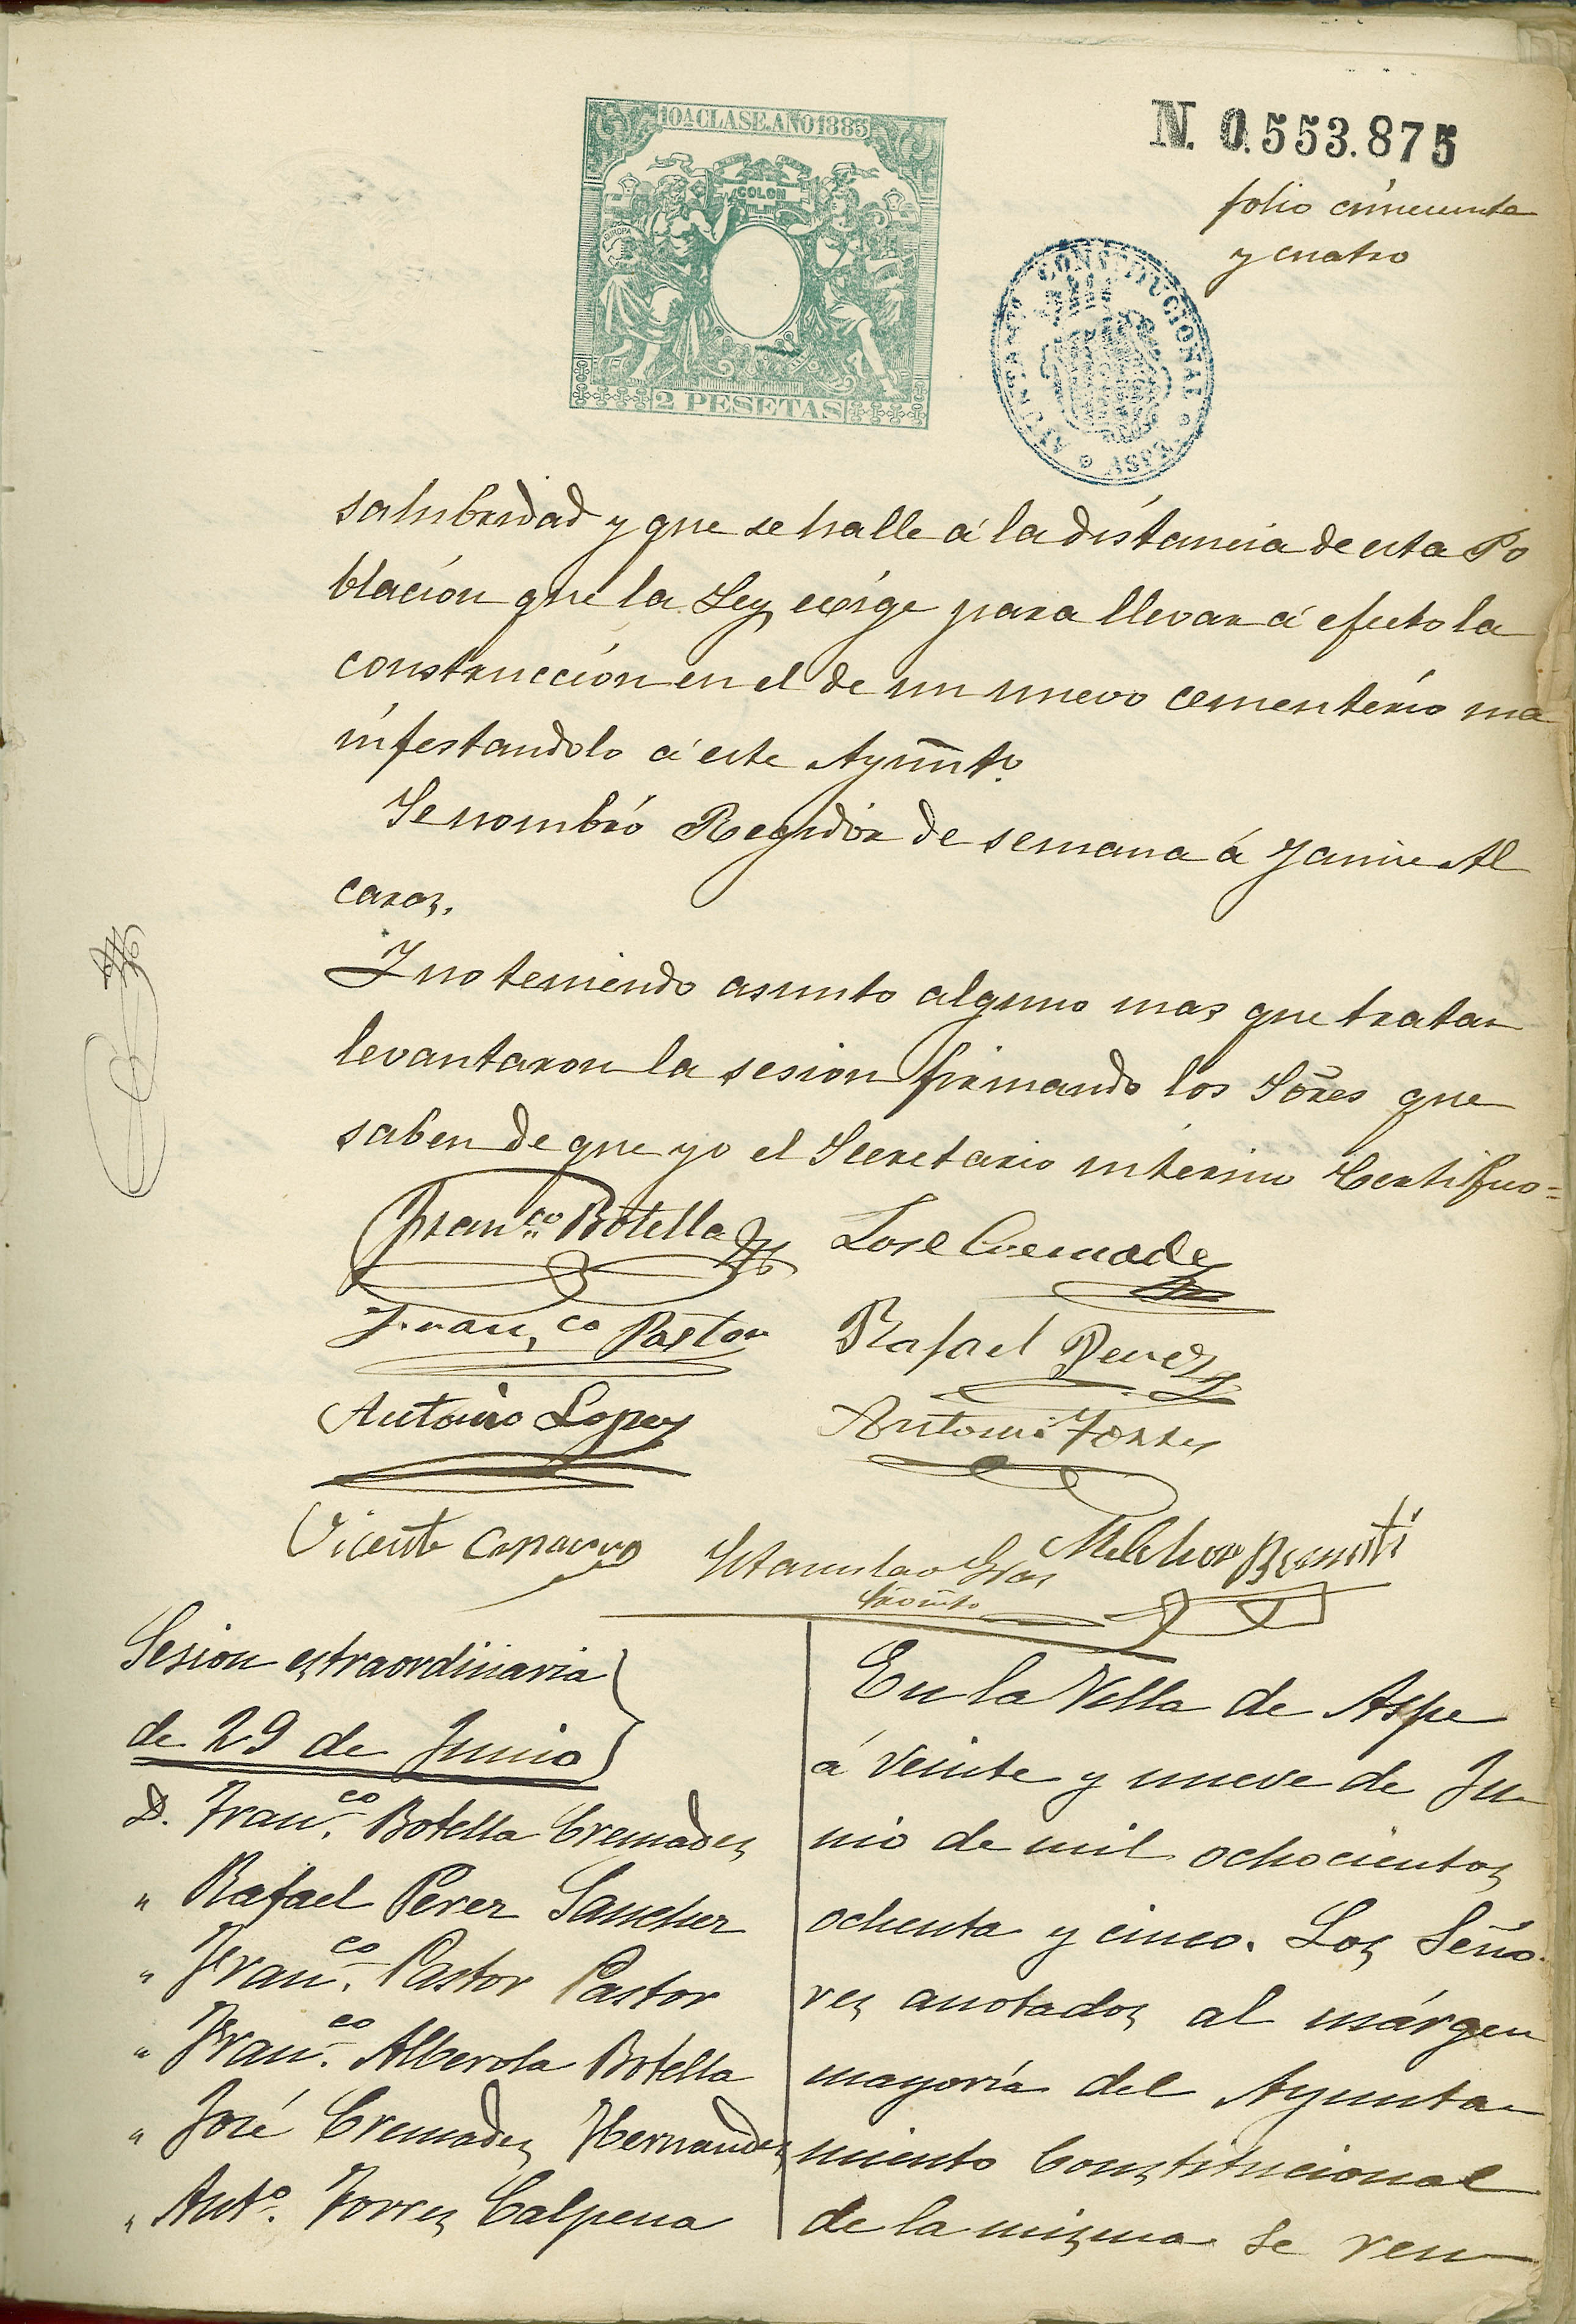 10A CLASE. AÑO 1885
COLON
EUROPA
2 PESETAS
N. 0.553.875
folio cincuenta
y cuatro
AYUNTAMIENTO CONSTITUCIONAL ASPE
salubridad y que se halle á la distancia de esta Po
blacion que la Ley exige para llevar á efecto la
construccion en el de un nuevo cementerio ma
nifestandolo á este Ayunto.
Se nombró Regidor de semana á Jaime Al
caraz.
Y no teniendo asunto alguno mas que tratar
levantaron la sesion firmando los Sores que
saben de que yo el Secretario interino Certifico=
Franco. Botella
Jose Cremades
Franco Pastor
Rafael Perez
Antonio Lopez
Antonio Torres
Vicente Caparros
Melchor
Sesion estraordinaria
de 29 de Junio
D. Franco. Botella Cremades
" Rafael Perez Sanchez
" Franco. Pastor Pastor
" Franco. Alberola Botella
" José Cremades Hernandez
" Anto. Torres Calpena
En la Villa de Aspe
á veinte y nueve de Ju-
nio de mil ochocientos
ochenta y cinco. Los Seño-
res anotados al márgen
mayoría del Ayunta-
miento Constitucional
de la misma se reu-